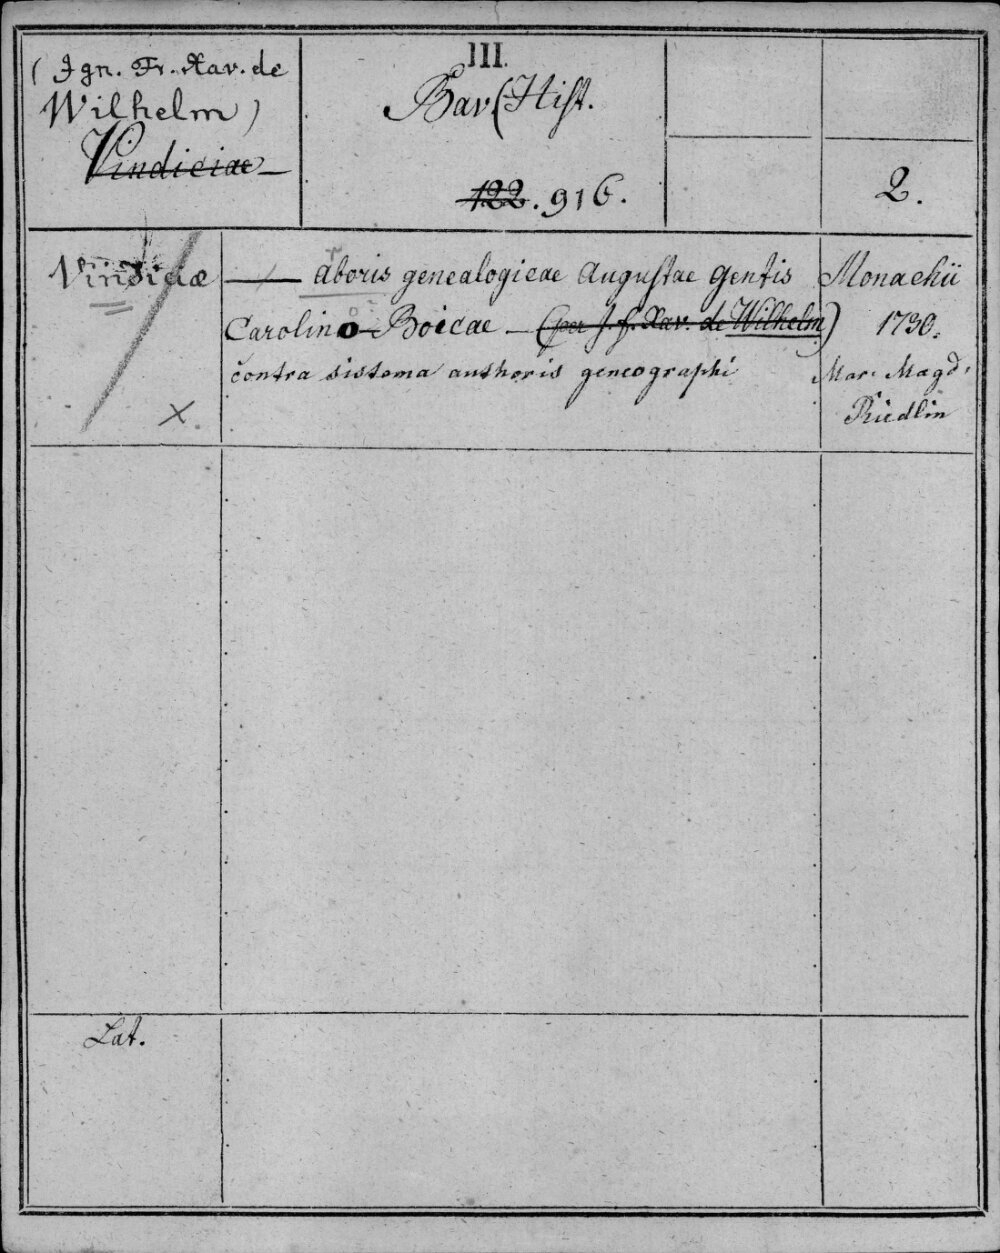 (Ign. Fr. Xav. de
Wilhelm)
Vindiciae
III.
Bav. Hist.
122. 916.
2.
Vindiciæ
aboris genealogicae Augustae Gentis
Carolino Boicae (per J. f. Xav. de Wilhelm)
contra sistema authoris geneographi
X
Monachii
1730.
Mar. Magd.
Riedlin
Lat.